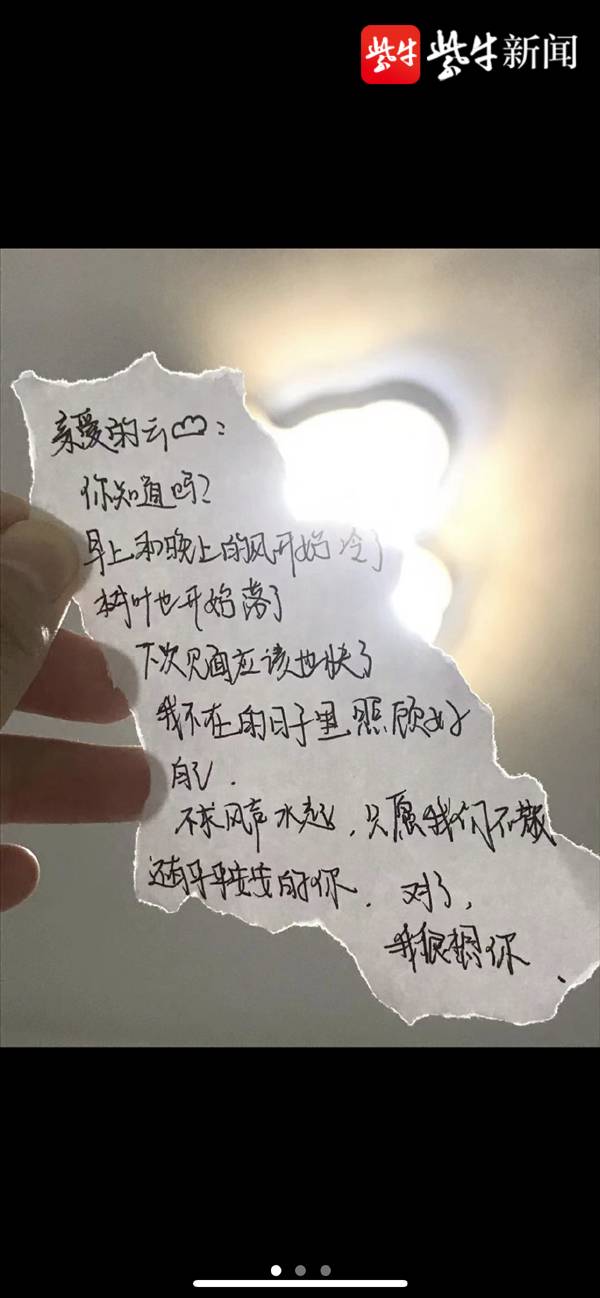 紫牛 紫牛新闻
亲爱的云：
你知道吗？
早上和晚上的风开始冷了
树叶也开始落了
下次见面应该也快了
我不在的日子里照顾好
自己.
不求风声水起，只愿我们不散
还有平平安安的你. 对了，
我很想你.